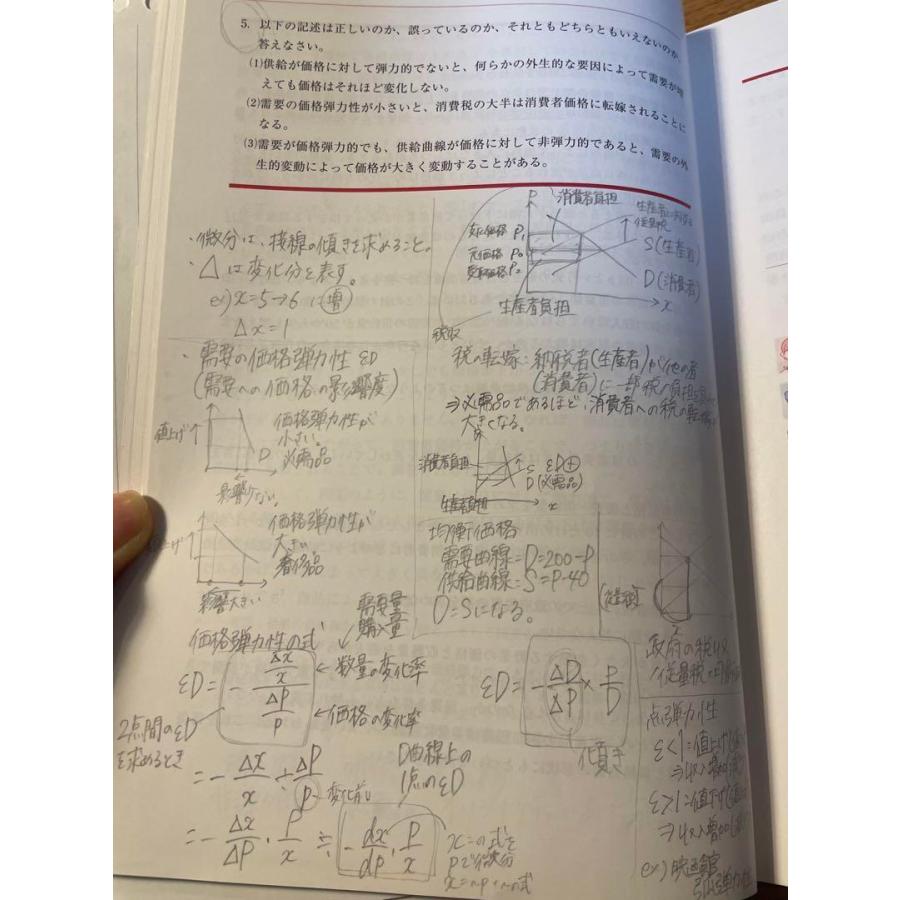 5. 以下の記述は正しいのか、誤っているのか、それともどちらともいえないのか、
答えなさい。
(1)供給が価格に対して弾力的でないと、何らかの外生的な要因によって需要が増
えても価格はそれほど変化しない。
(2)需要の価格弾力性が小さいと、消費税の大半は消費者価格に転嫁されることに
なる。
(3)需要が価格弾力的でも、供給曲線が価格に対して非弾力的であると、需要の外
生的変動によって価格が大きく変動することがある。
・微分は、接線の傾きを求めること。
・△は変化分を表す。
ex) x=5→6 に増
Δx=1
・需要の価格弾力性 εD
(需要への価格の影響度)
値上げ
D
価格弾力性が
小さい。
必需品
影響少ない。
価格弾力性が
大きい。
奢侈品
影響大きい
価格弾力性の式
需要量
購入量
εD = - Δx/x / Δp/p
←数量の変化率
←価格の変化率
2点間のεD
を求めるとき
= - Δx/x ÷ Δp/p
変化前
D曲線上の
1点のεD
= - Δx/Δp · p/x ≒ - dx/dp · p/x
x=の式を
pで微分
P
消費者負担
生産者に対する
従量税
P1
元価格 P0
P2
S(生産者)
D(消費者)
x
生産者負担
税収
税の転嫁:納税者(生産者)が他の者
(消費者)に一部税の負担
⇒必需品であるほど、消費者への税の転嫁
大きくなる。
消費者負担
S
εD
D(必需品)
生産者負担
x
均衡価格
需要曲線=D=200-P
供給曲線=S=P-40
D=Sになる。
(従量税)
x
εD = - ΔD/ΔP × P/D
傾き
政府の税収
点弾力性
ε<1=値上げ
⇒収入増加
ε>1=値下げ
⇒収入増加
ex)映画館